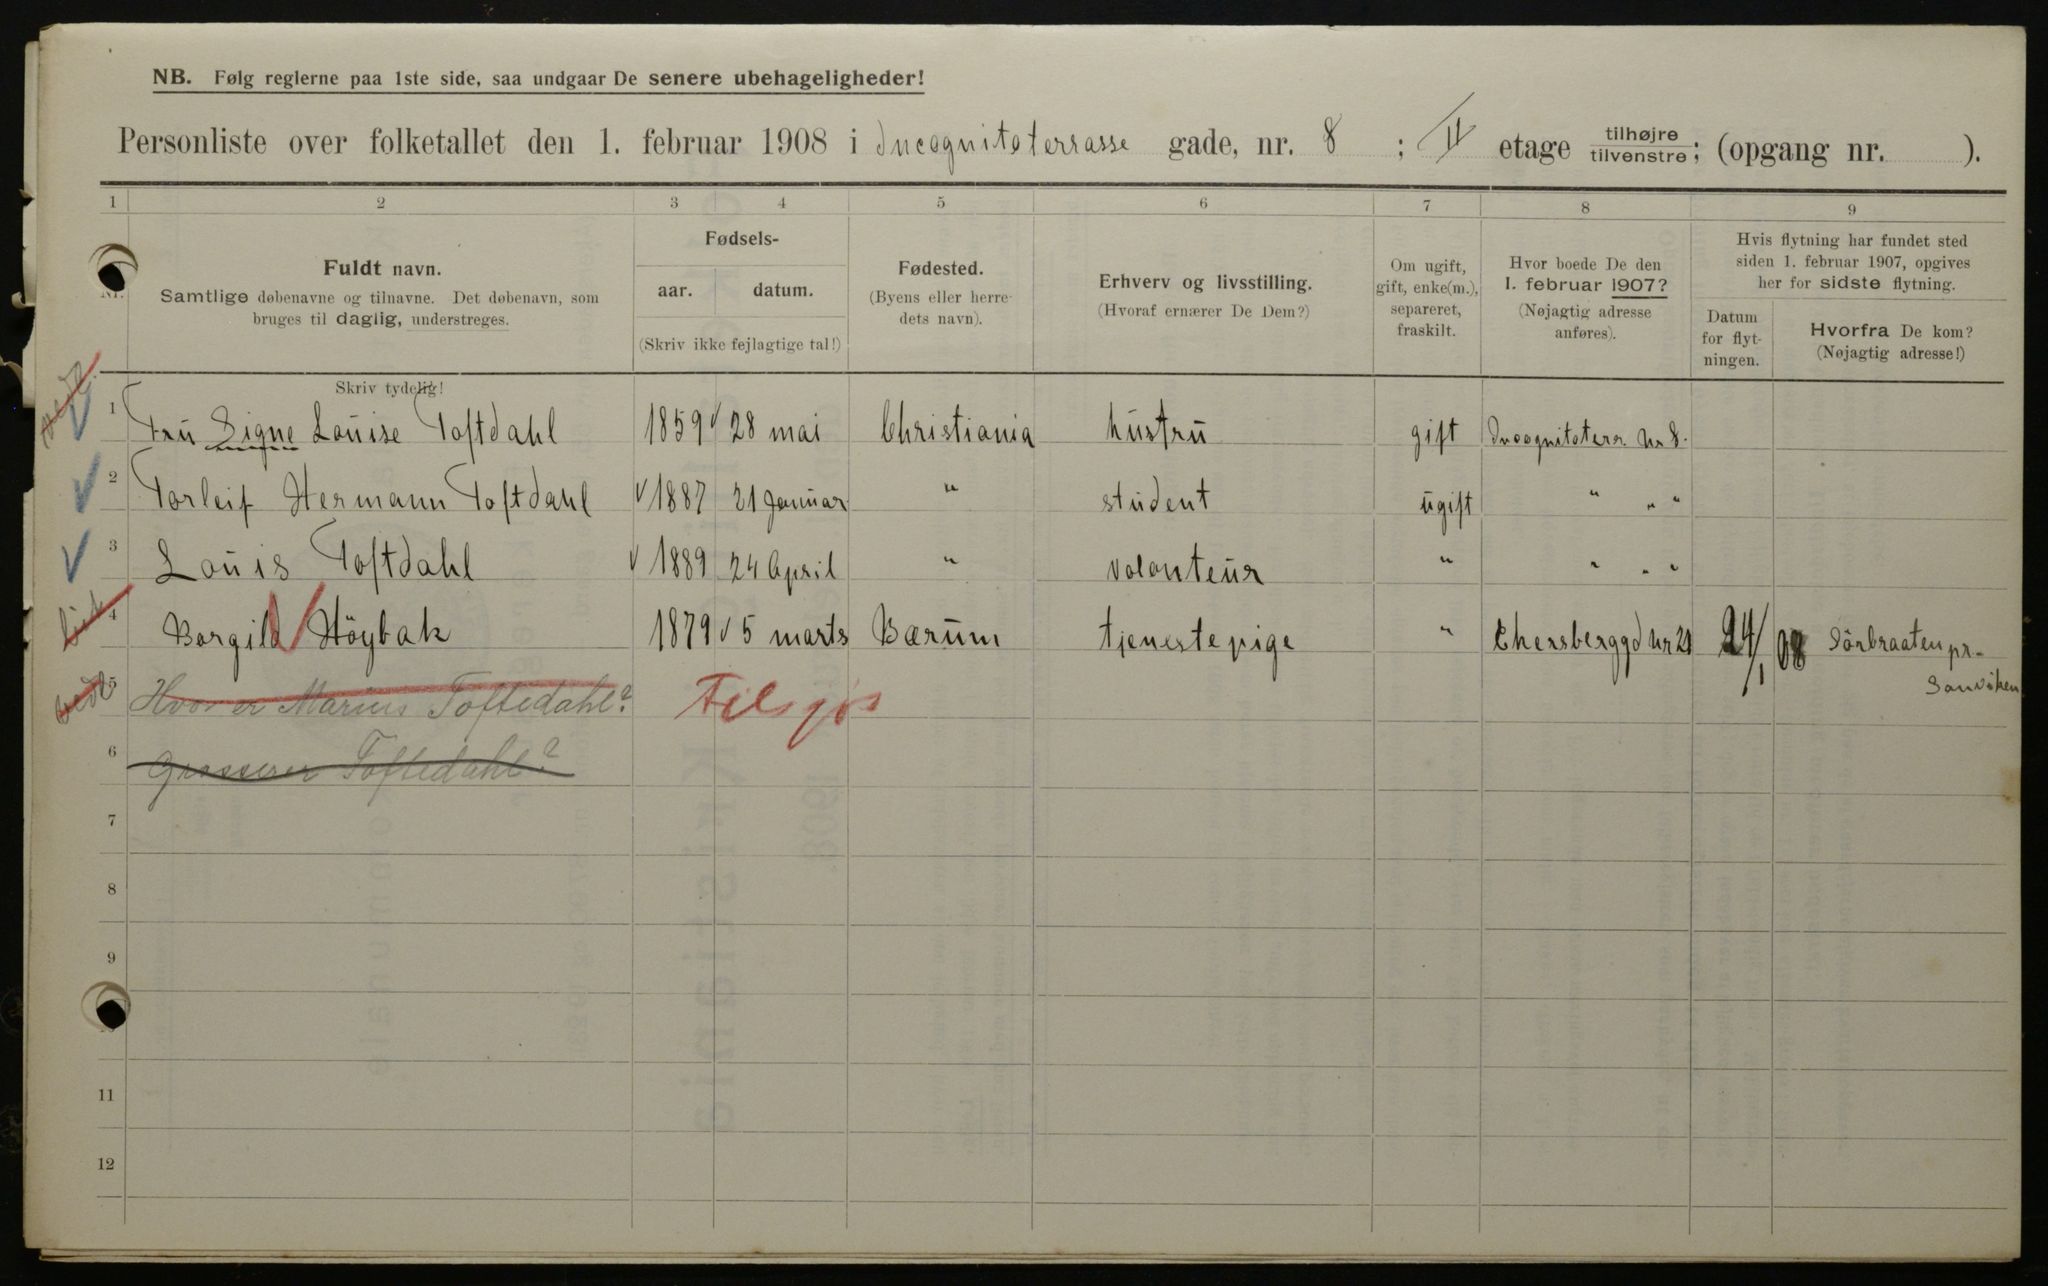 NB. Følg reglerne paa 1ste side, saa undgaar De senere ubehageligheder!
Personliste over folketallet den 1. februar 1908 i Incognitoterrasse gade, nr. 8 ; II etage tilhøjre tilvenstre; (opgang nr. ).
1 2 3 4 5 6 7 8 9
Nr.
Fuldt navn.
Samtlige døbenavne og tilnavne. Det døbenavn, som
bruges til daglig, understreges.
Skriv tydelig!
Fødsels-
aar. datum.
(Skriv ikke fejlagtige tal!)
Fødested.
(Byens eller herre-
dets navn).
Erhverv og livsstilling.
(Hvoraf ernærer De Dem?)
Om ugift,
gift, enke(m.),
separeret,
fraskilt.
Hvor boede De den
1. februar 1907?
(Nøjagtig adresse
anføres).
Hvis flytning har fundet sted
siden 1. februar 1907, opgives
her for sidste flytning.
Datum
for flyt-
ningen.
Hvorfra De kom?
(Nøjagtig adresse!)
1 Fru Signe Louise Toftdahl 1859 28 mai Christiania hustru gift Incognitoterr Nr 8.
2 Torleif Hermann Toftdahl 1887 21 Januar " student ugift " " "
3 Louis Toftdahl 1889 24 April " volonteur " " " "
4 Borgild Höybak 1879 5 marts Bærum tjenestepige " Ehersberggd Nr 21 24/1 08 Sörbraaten pr.
Sanviken
5 Hvor er Marius Toftedahl?
6 Grosserer Toftedahl?
7
8
9
11
12